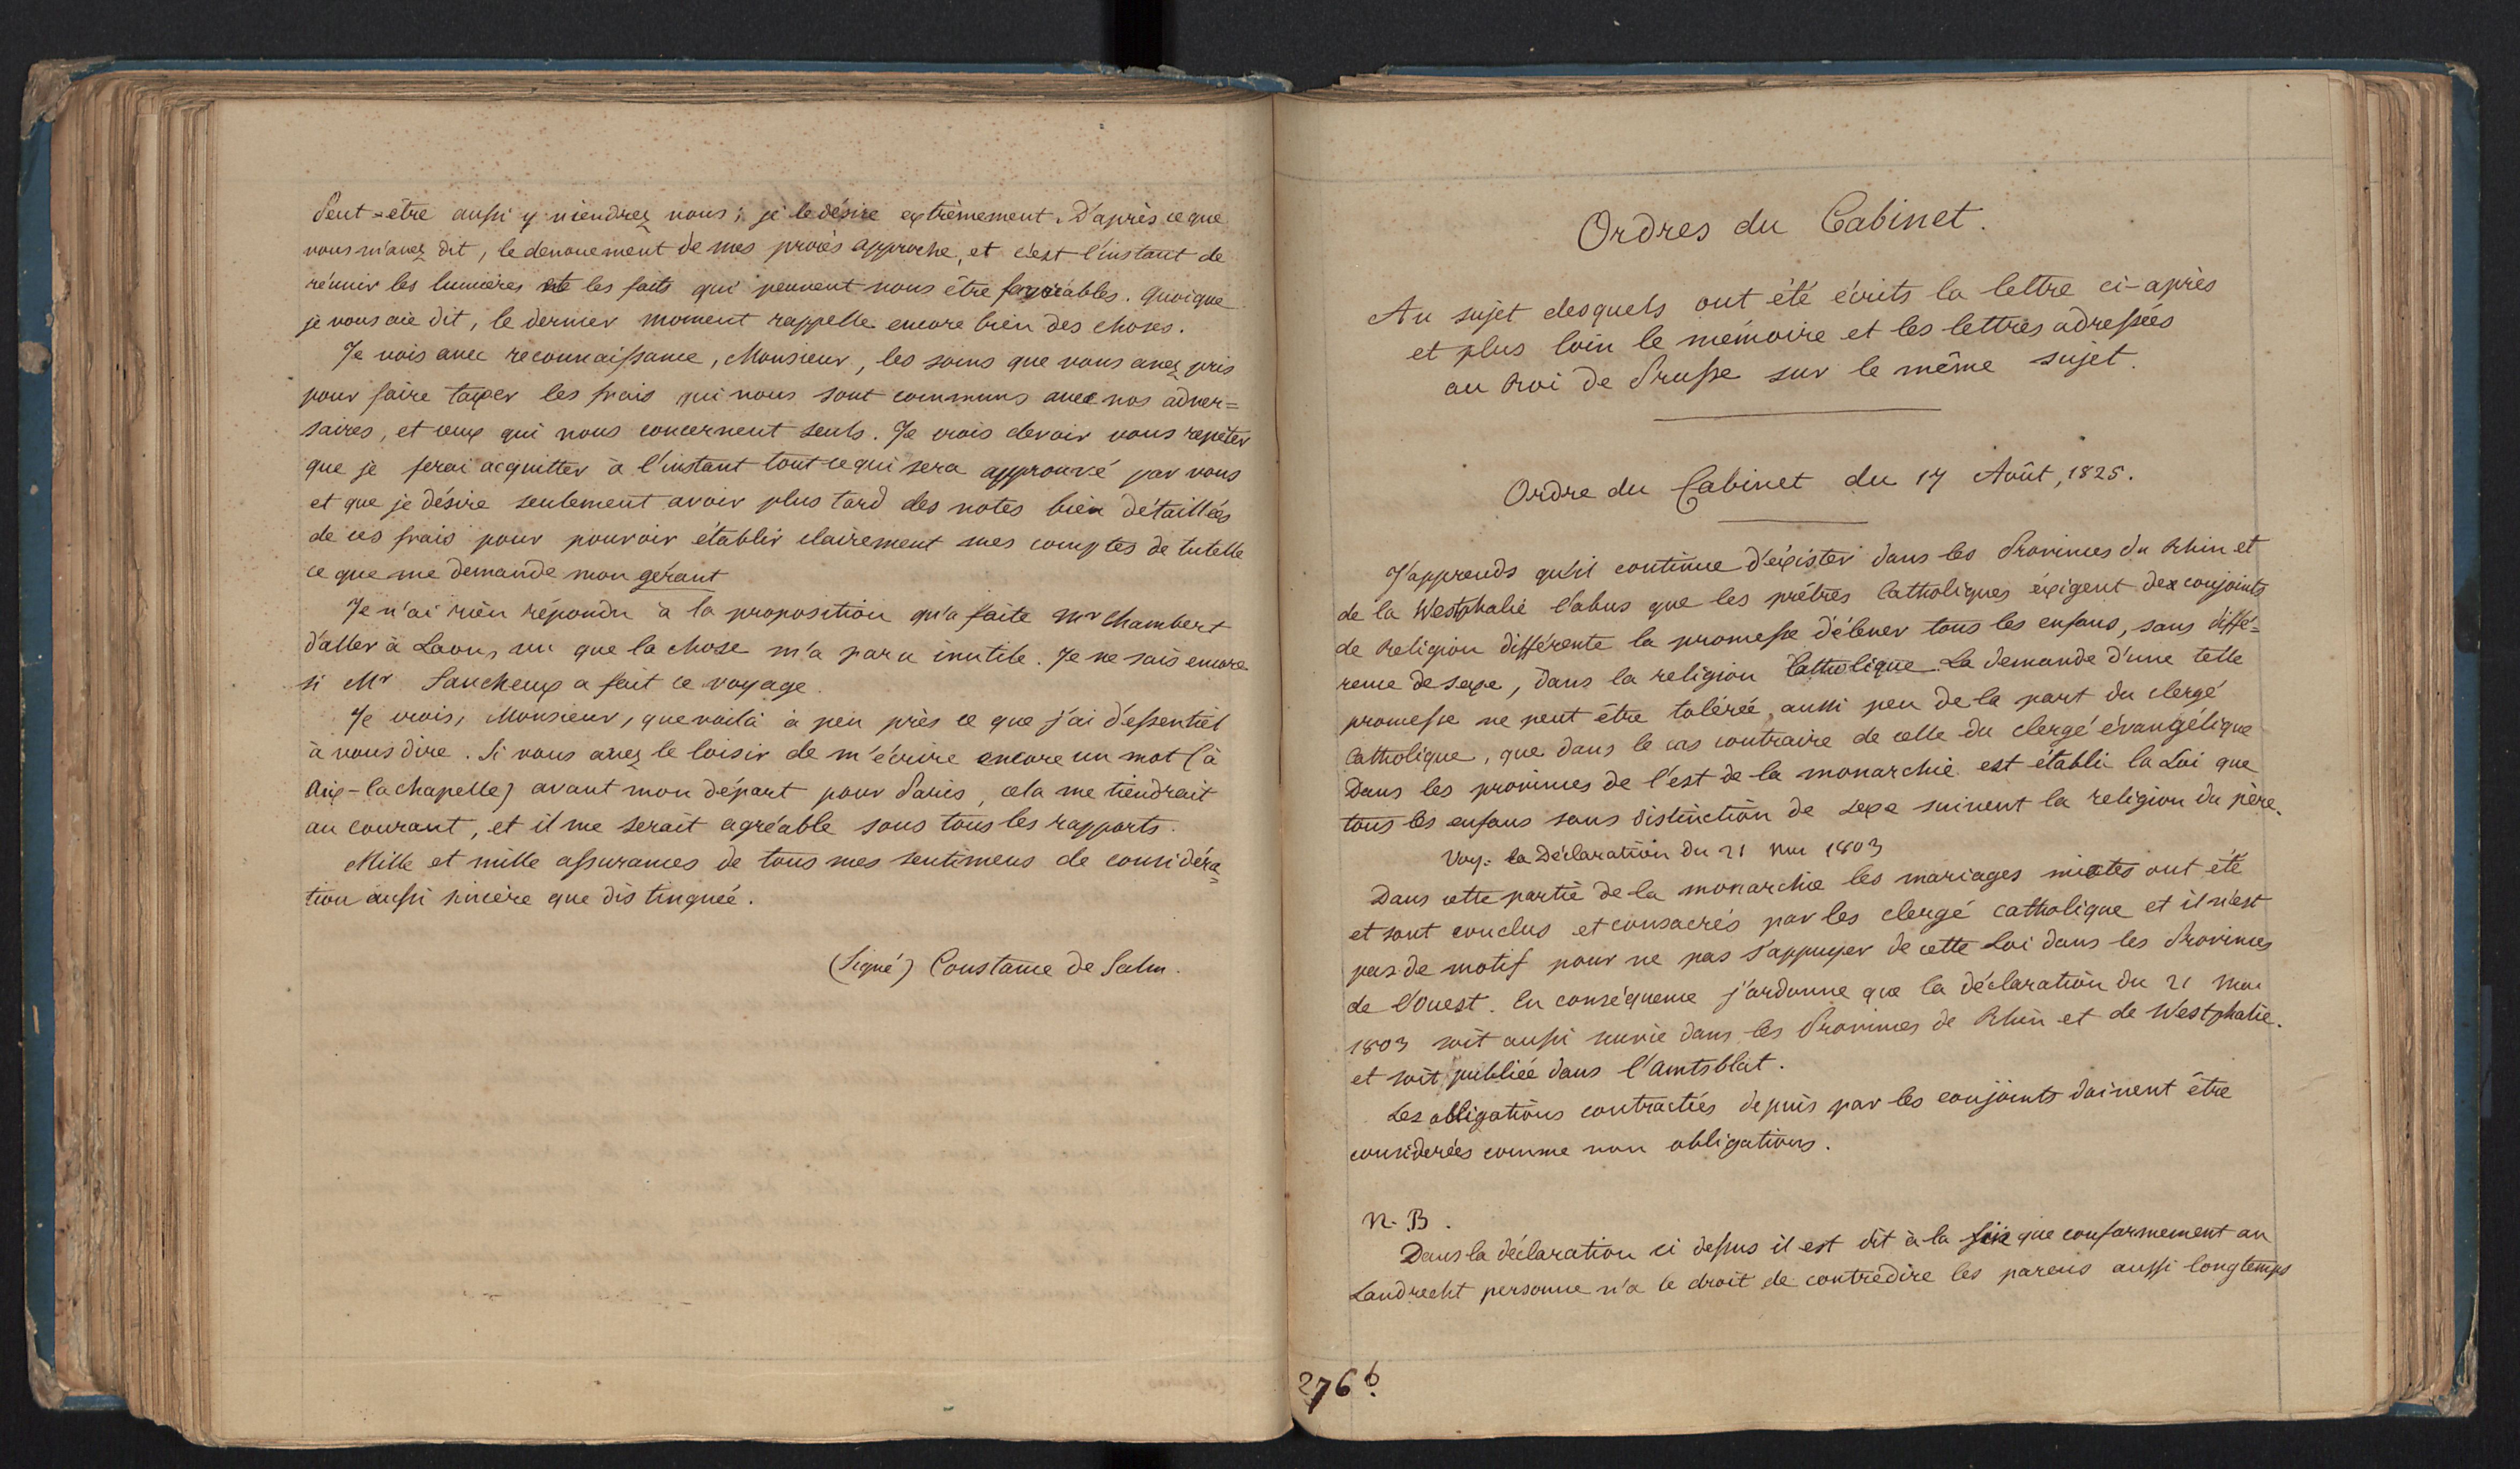 Peut-être aussi y viendrez vous; je le désire extrèmement. D'après ce que
vous m'avez dit, le denouement de mes procès approche, et c'est l'instant de
réunir les lumières et les faits qui peuvent nous être favorables. Quoique
je vous aie dit, le dernier moment rappelle encore bien des choses.
Je vois avec reconnaissance, Monsieur, les soins que vous avez pris
pour faire taxer les frais qui nous sont communs avec nos adver=
saires, et ceux qui nous concernent seuls. Je crois devoir vous repéter
que je ferai acquitter à l'instant tout ce qui sera approuvé par vous
et que je désire seulement avoir plus tard des notes bien détaillées
de ces frais pour pouvoir établir clairement mes comptes de tutelle
ce que me demande mon gérant
Je n'ai rien répondu à la proposition qu'a faite Mr Chambert
d'aller à Laon, vu que la chose m'a paru inutile. Je ne sais encore
si Mr Faucheux a fait ce voyage.
Je crois, Monsieur, que voilà à peu près ce que j'ai d'essentiel
à vous dire. Si vous avez le loisir de m'écrire encore un mot (à
Aix-la chapelle) avant mon départ pour Paris, cela me tiendrait
au courant, et il me serait agréable sous tous les rapports.
Mille et mille assurances de tous mes sentimens de considéra=
tion aussi sincère que distinguée.
(Signé) Constance de Salm.
Ordres du Cabinet.
Au sujet desquels ont été écrits la lettre ci-après
et plus loin le mémoire et les lettres adressées
au Roi de Prusse sur le même sujet.
Ordre du Cabinet du 17 Août, 1825.
J'apprends qu'il continue d'éxister dans les Provinces du Rhin et
de la Westphalie l'abus que les prêtres Catholiques éxigent des conjoints
de Religion différente la promesse d'élever tous les enfans, sans diffé=
rence de sexe, dans la religion Catholique. La demande d'une telle
promesse ne peut être tolérée, aussi peu de la part du clergé
Catholique, que dans le cas contraire de celle du clergé évangélique
Dans les provinces de l'est de la monarchie est établie la Loi que
tous les enfans sans distinction de sexe suivent la religion du père.
Voy: la Déclaration du 21 Nov 1803
Dans cette partie de la monarchie les mariages mixtes ont été
et sont conclus et consacrés par les clergé catholique et il n'est
pas de motif pour ne pas s'appuyer de cette Loi dans les Provinces
de l'Ouest. En conséquence j'ordonne que la déclaration du 21 Nov
1803 soit aussi suivie dans les Provinces de Rhin et de Westphalie.
et soit publiée dans l'Amtsblat.
Les obligations contractées depuis par les conjoints doivent être
considerées comme non obligations.
N. B.
Dans la déclaration ci dessus il est dit à la fin que conformement au
Landrecht personne n'a le droit de contredire les parens aussi longtemps
276 b.